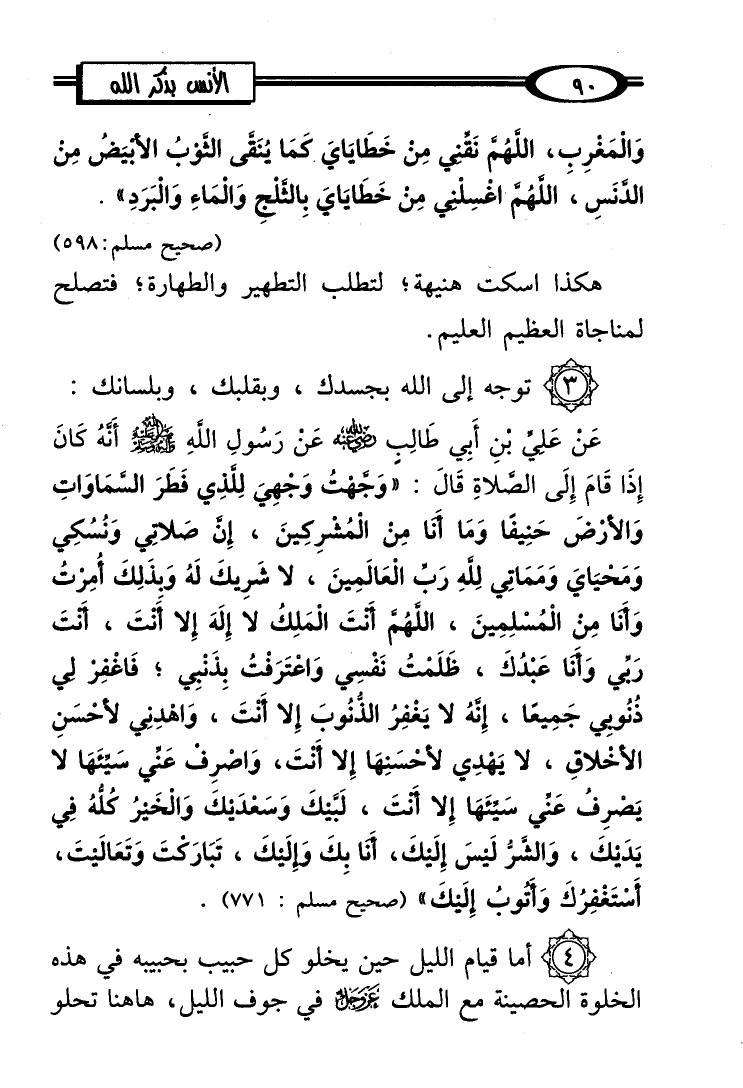 ٩٠ الأنس بذكر الله
وَالْمَغْرِبِ، اللَّهُمَّ نَقِّنِي مِنْ خَطَايَايَ كَمَا يُنَقَّى الثَّوْبُ الأَبْيَضُ مِنَ
الدَّنَسِ ، اللَّهُمَّ اغْسِلْنِي مِنْ خَطَايَايَ بِالثَّلْجِ وَالْمَاءِ وَالْبَرَدِ» .
(صحيح مسلم: ٥٩٨)
هكذا اسكت هنيهة؛ لتطلب التطهير والطهارة؛ فتصلح
لمناجاة العظيم العليم.
٣ توجه إلى الله بجسدك ، وبقلبك ، وبلسانك :
عَنْ عَلِيِّ بْنِ أَبِي طَالِبٍ رضي الله عنه عَنْ رَسُولِ اللَّهِ ﷺ أَنَّهُ كَانَ
إِذَا قَامَ إِلَى الصَّلاةِ قَالَ : «وَجَّهْتُ وَجْهِيَ لِلَّذِي فَطَرَ السَّمَاوَاتِ
وَالأَرْضَ حَنِيفًا وَمَا أَنَا مِنَ الْمُشْرِكِينَ ، إِنَّ صَلاتِي وَنُسُكِي
وَمَحْيَايَ وَمَمَاتِي لِلَّهِ رَبِّ الْعَالَمِينَ ، لا شَرِيكَ لَهُ وَبِذَلِكَ أُمِرْتُ
وَأَنَا مِنَ الْمُسْلِمِينَ ، اللَّهُمَّ أَنْتَ الْمَلِكُ لا إِلَهَ إِلا أَنْتَ ، أَنْتَ
رَبِّي وَأَنَا عَبْدُكَ ، ظَلَمْتُ نَفْسِي وَاعْتَرَفْتُ بِذَنْبِي ؛ فَاغْفِرْ لِي
ذُنُوبِي جَمِيعًا ، إِنَّهُ لا يَغْفِرُ الذُّنُوبَ إِلا أَنْتَ ، وَاهْدِنِي لأَحْسَنِ
الأَخْلاقِ ، لا يَهْدِي لأَحْسَنِهَا إِلا أَنْتَ، وَاصْرِفْ عَنِّي سَيِّئَهَا لا
يَصْرِفُ عَنِّي سَيِّئَهَا إِلا أَنْتَ ، لَبَّيْكَ وَسَعْدَيْكَ وَالْخَيْرُ كُلُّهُ فِي
يَدَيْكَ ، وَالشَّرُّ لَيْسَ إِلَيْكَ، أَنَا بِكَ وَإِلَيْكَ ، تَبَارَكْتَ وَتَعَالَيْتَ،
أَسْتَغْفِرُكَ وَأَتُوبُ إِلَيْكَ» (صحيح مسلم : ٧٧١) .
٤ أما قيام الليل حين يخلو كل حبيب بحبيبه في هذه
الخلوة الحصينة مع الملك عز وجل في جوف الليل، هاهنا تحلو